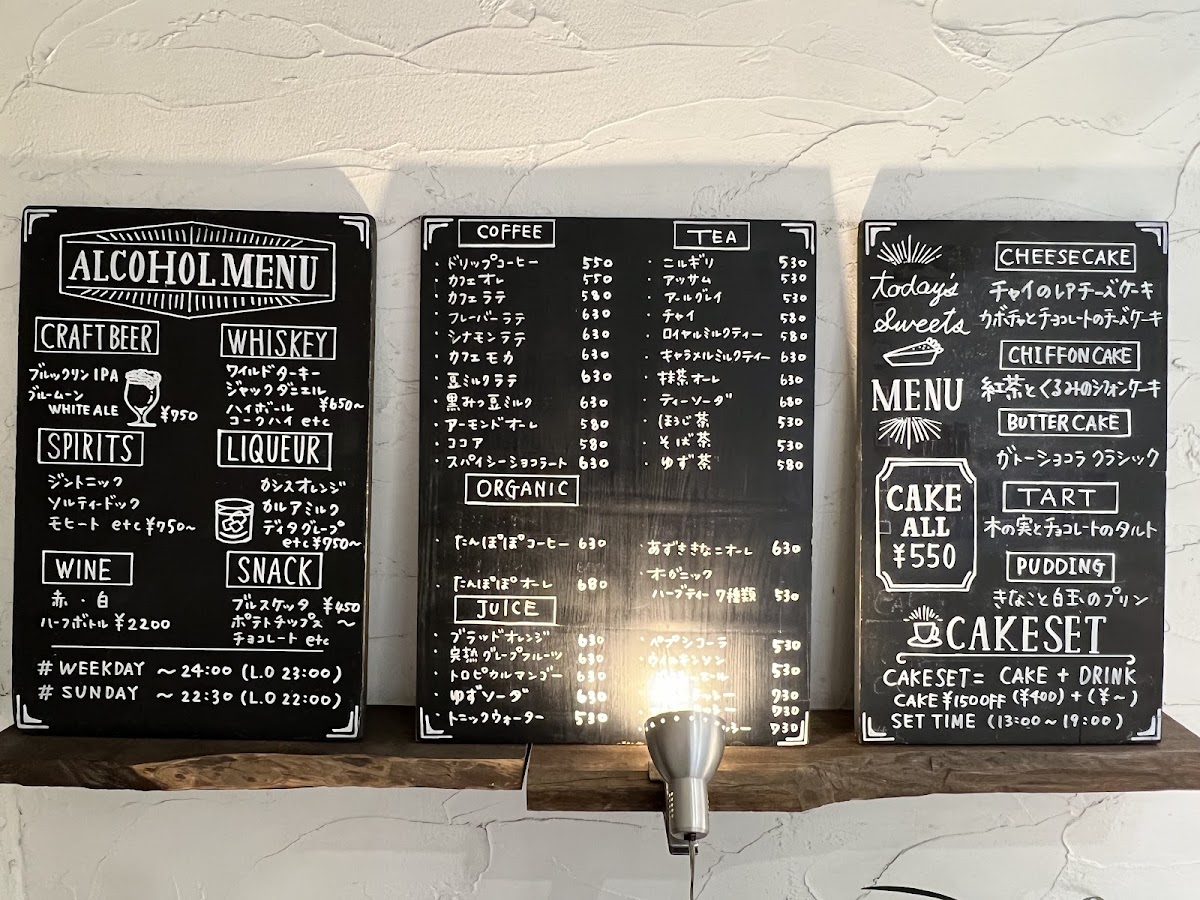 ALCOHOL MENU
CRAFT BEER
ブルックリン IPA
ブルームーン
WHITE ALE ¥750
WHISKEY
ワイルドターキー
ジャックダニエル
ハイボール ¥650~
コークハイ etc
SPIRITS
ジントニック
ソルティードッグ
モヒート etc ¥750~
LIQUEUR
カシスオレンジ
カルアミルク
ディタグレープ
etc ¥750~
WINE
赤・白
ハーフボトル ¥2200
SNACK
ブルスケッタ ¥450
ポテトチップス ~
チョコレート etc
# WEEKDAY ~24:00 (L.O 23:00)
# SUNDAY ~22:30 (L.O 22:00)
COFFEE
・ドリップコーヒー 550
・カフェオレ 550
・カフェラテ 580
・フレーバーラテ 630
・シナモンラテ 630
・カフェモカ 630
・豆ミルクラテ 630
・黒みつ豆ミルク 630
・アーモンドオーレ 580
・ココア 580
・スパイシーショコラート 630
TEA
・ニルギリ 530
・アッサム 530
・アールグレイ 530
・チャイ 580
・ロイヤルミルクティー 580
・キャラメルミルクティー 630
・抹茶オーレ 630
・ティーソーダ 680
・ほうじ茶 530
・そば茶 530
・ゆず茶 580
ORGANIC
・たんぽぽコーヒー 630
・たんぽぽオーレ 680
・あずききなこオーレ 630
・オーガニック
ハーブティー 7種類 530
JUICE
・ブラッドオレンジ 630
・完熟グレープフルーツ 630
・トロピカルマンゴー 630
・ゆずソーダ 630
・トニックウォーター 530
・ペプシコーラ 530
・ウィルキンソン
530
730
730
730
today's
sweets
MENU
CAKE
ALL
¥550
CHEESECAKE
チャイのレアチーズケーキ
カボチャとチョコレートのチーズケーキ
CHIFFON CAKE
紅茶とくるみのシフォンケーキ
BUTTER CAKE
ガトーショコラ クラシック
TART
木の実とチョコレートのタルト
PUDDING
きなこと白玉のプリン
CAKESET
CAKESET = CAKE + DRINK
CAKE ¥150OFF (¥400) + (¥~)
SET TIME (13:00~19:00)